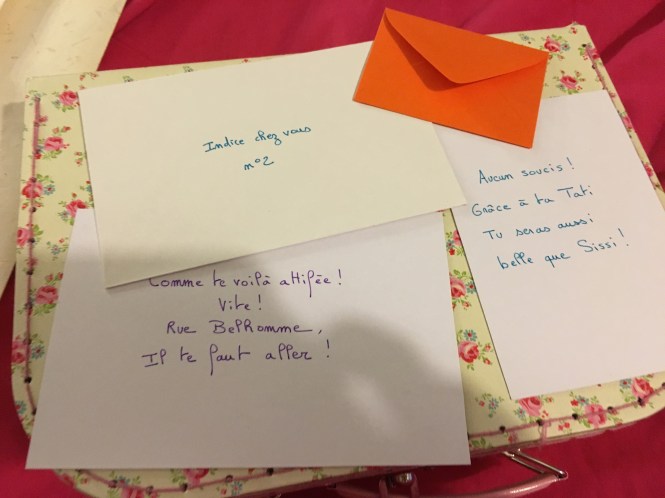 Indice chez vous
n°2
Aucun soucis !
Grâce à ta Tati
Tu seras aussi
belle que Sissi !
Comme te voilà attifée !
Vite !
Rue Belhomme,
Il te faut aller !